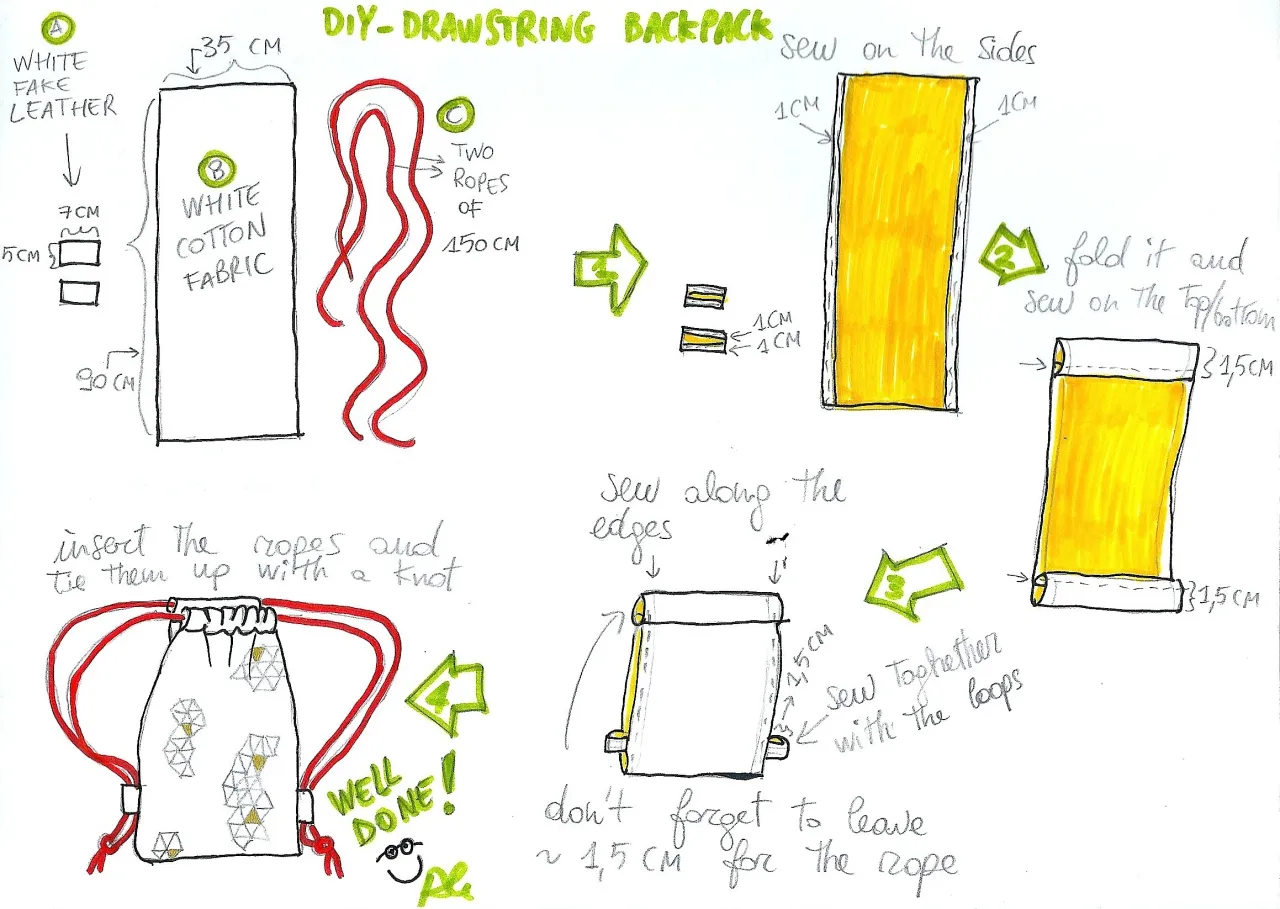 DIY-DRAWSTRING BACKPACK
A
WHITE
FAKE
LEATHER
7CM
5CM
35 CM
B
WHITE
COTTON
FABRIC
90 CM
C
TWO
ROPES
OF
150 CM
1
sew on the sides
1CM
1CM
1CM
1CM
2
fold it and
sew on the top/bottom
1,5CM
1,5CM
3
sew along the
edges
3,5 CM
sew toghether
with the loops
don't forget to leave
~ 1,5 CM for the rope
4
insert the ropes and
tie them up with a knot
WELL
DONE!